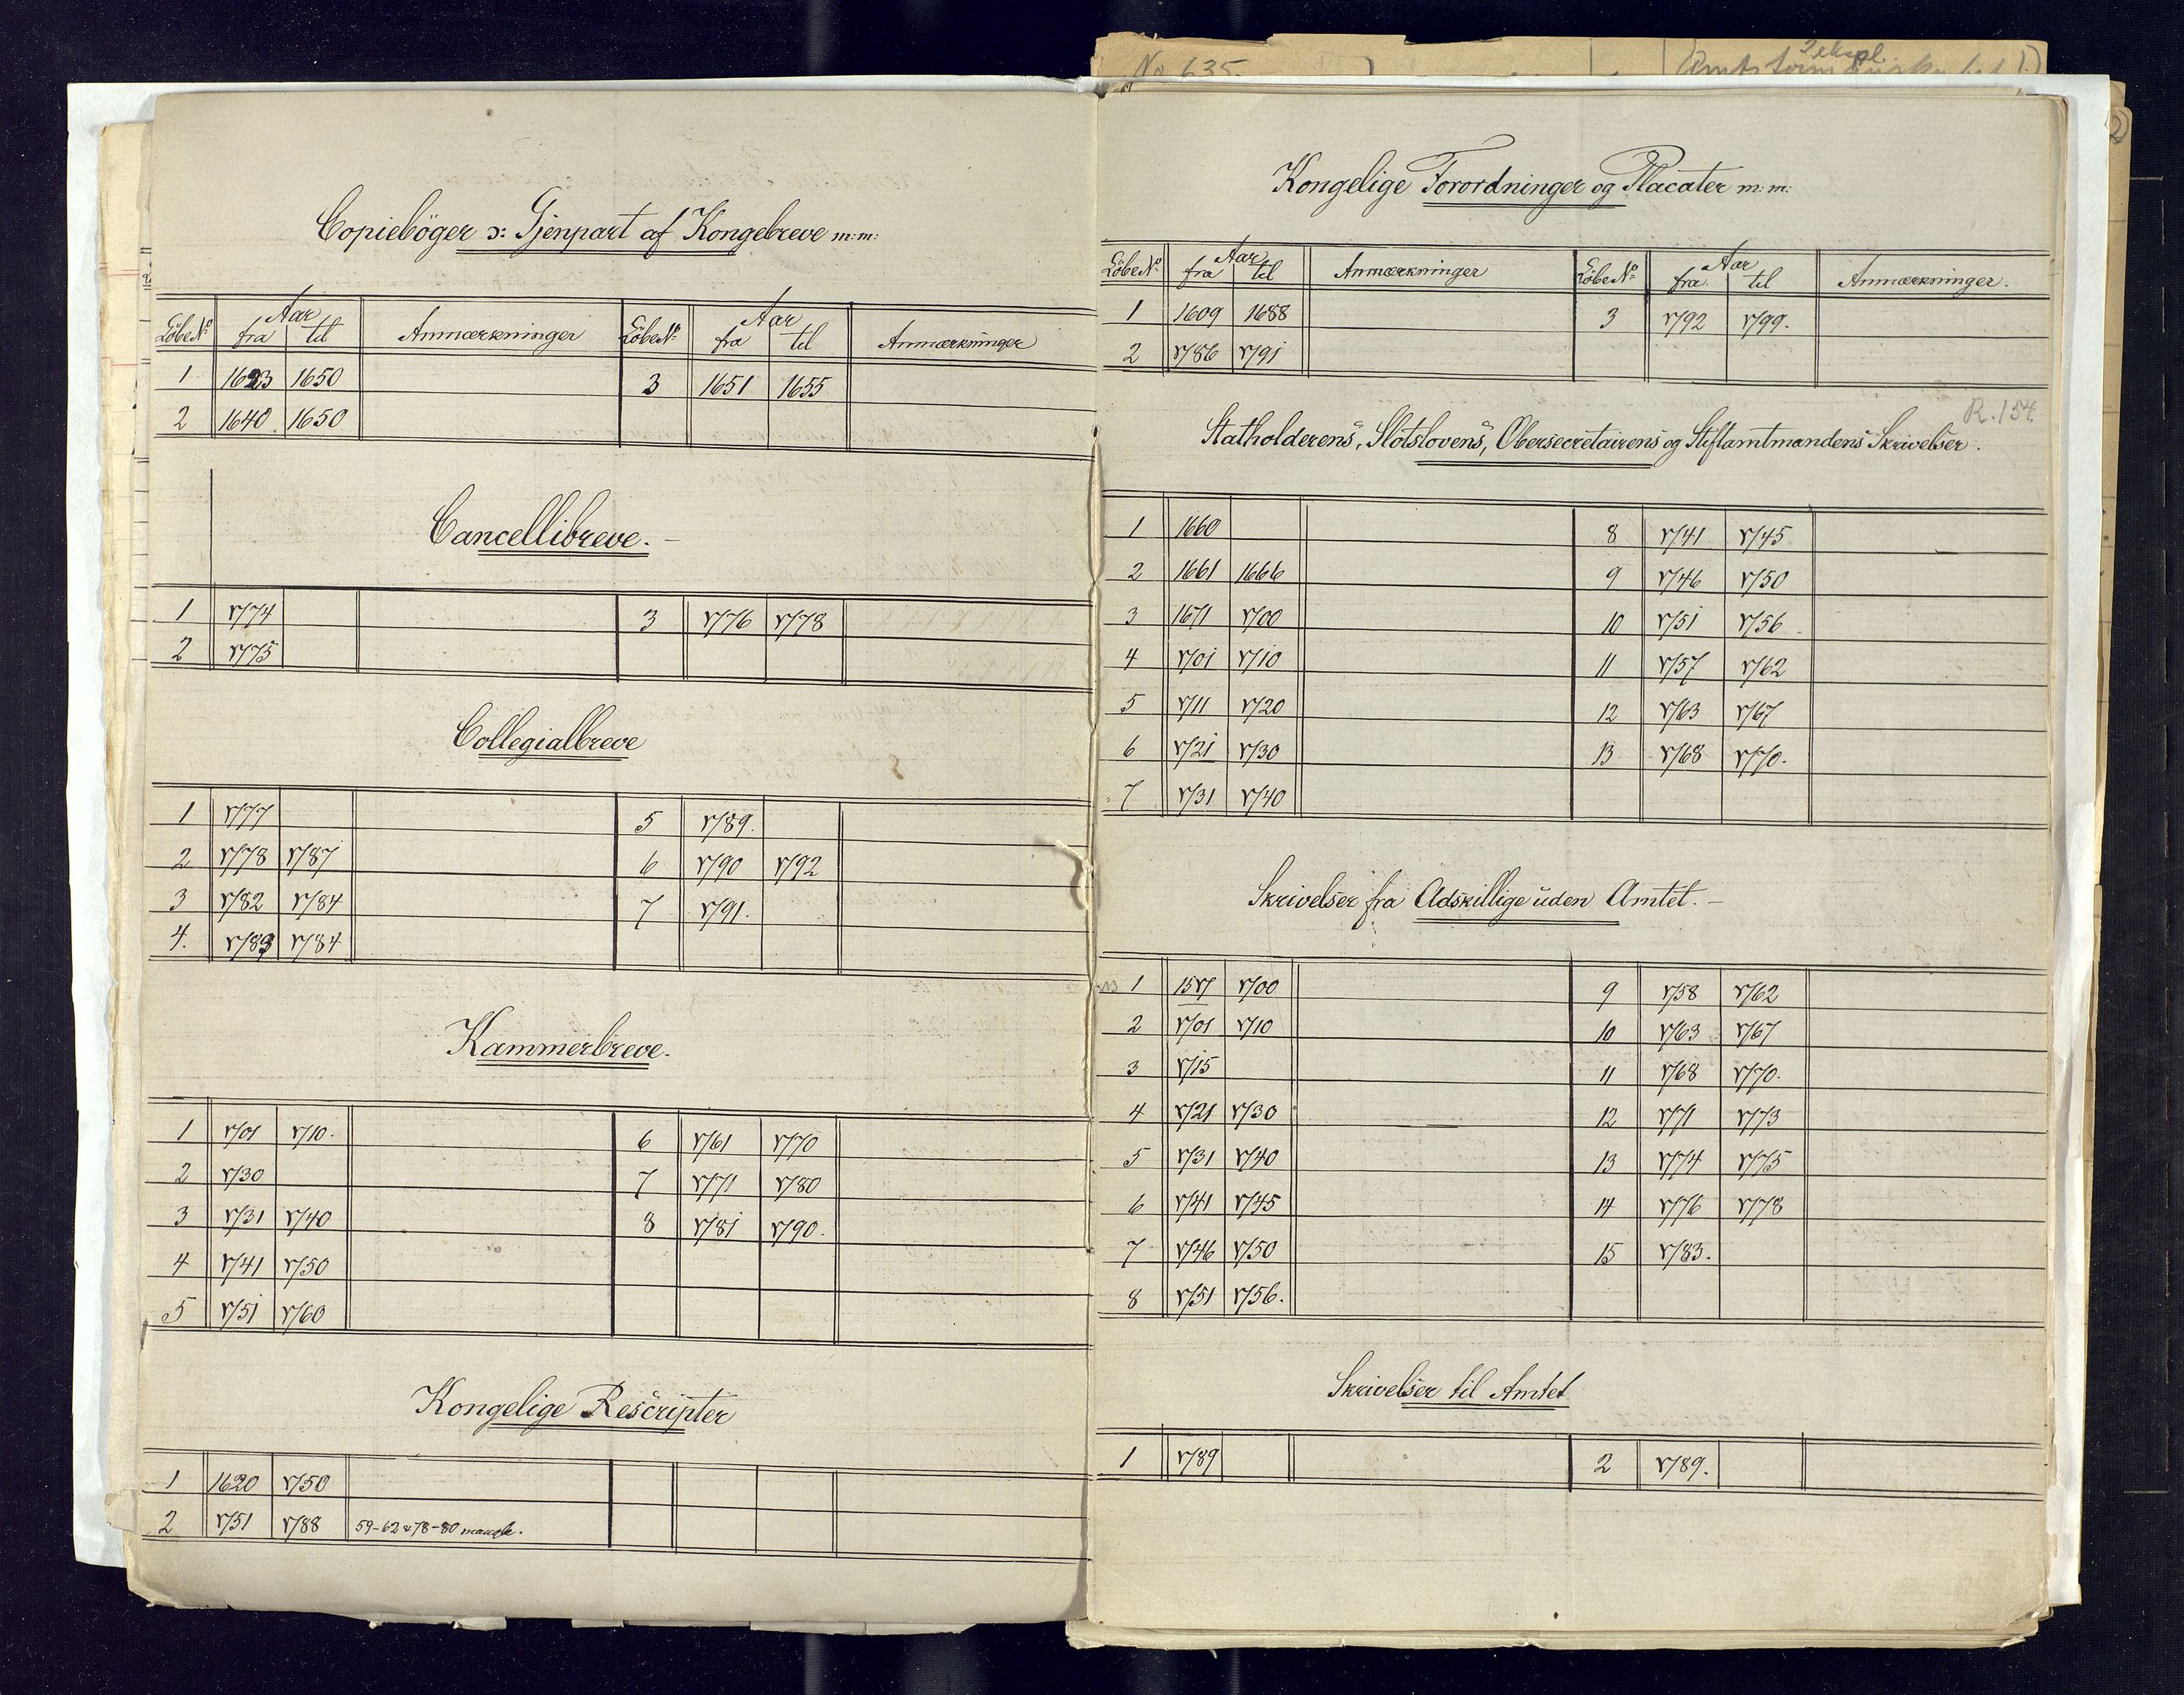 Copiebøger ɔ: Gjenpart af Kongebreve m:m:
Løbe№ Aar fra til Anmærkninger Løbe№ Aar fra til Anmærkninger
1 1623 1650 3 1651 1655
2 1640 1650
Cancellibreve.
1 1774 3 1776 1778
2 1775
Collegialbreve
1 1777 5 1789.
2 1778 1787 6 1790 1792
3 1782 1784 7 1791.
4. 1783 1784
Kammerbreve.
1 1701 1710. 6 1761 1770
2 1730 7 1771 1780
3 1731 1740 8 1781 1790.
4 1741 1750
5 1751 1760
Kongelige Rescripter
1 1620 1750
2 1751 1788 59-62 & 78-80 mangle.
No 635.
2 ekspl.
Kongelige Forordninger og Placater m:m:
Løbe№ Aar fra til Anmærkninger Løbe№ Aar fra til Anmærkninger.
1 1609 1688 3 1792 1799.
2 1786 1791
R. 154.
Statholderens, Slotslovens, Obersecretairens og Stiftamtmandens Skrivelser.
1 1660 8 1741 1745
2 1661 1666 9 1746 1750
3 1671 1700 10 1751 1756
4 1701 1710 11 1757 1762
5 1711 1720 12 1763 1767
6 1721 1730 13 1768 1770.
7 1731 1740
Skrivelser fra Adskillige uden Amtet.
1 1517 1700 9 1758 1762
2 1701 1710 10 1763 1767
3 1715 11 1768 1770.
4 1721 1730 12 1771 1773
5 1731 1740 13 1774 1775
6 1741 1745 14 1776 1778
7 1746 1750 15 1783.
8 1751 1756.
Skrivelser til Amtet
1 1789 2 1789.